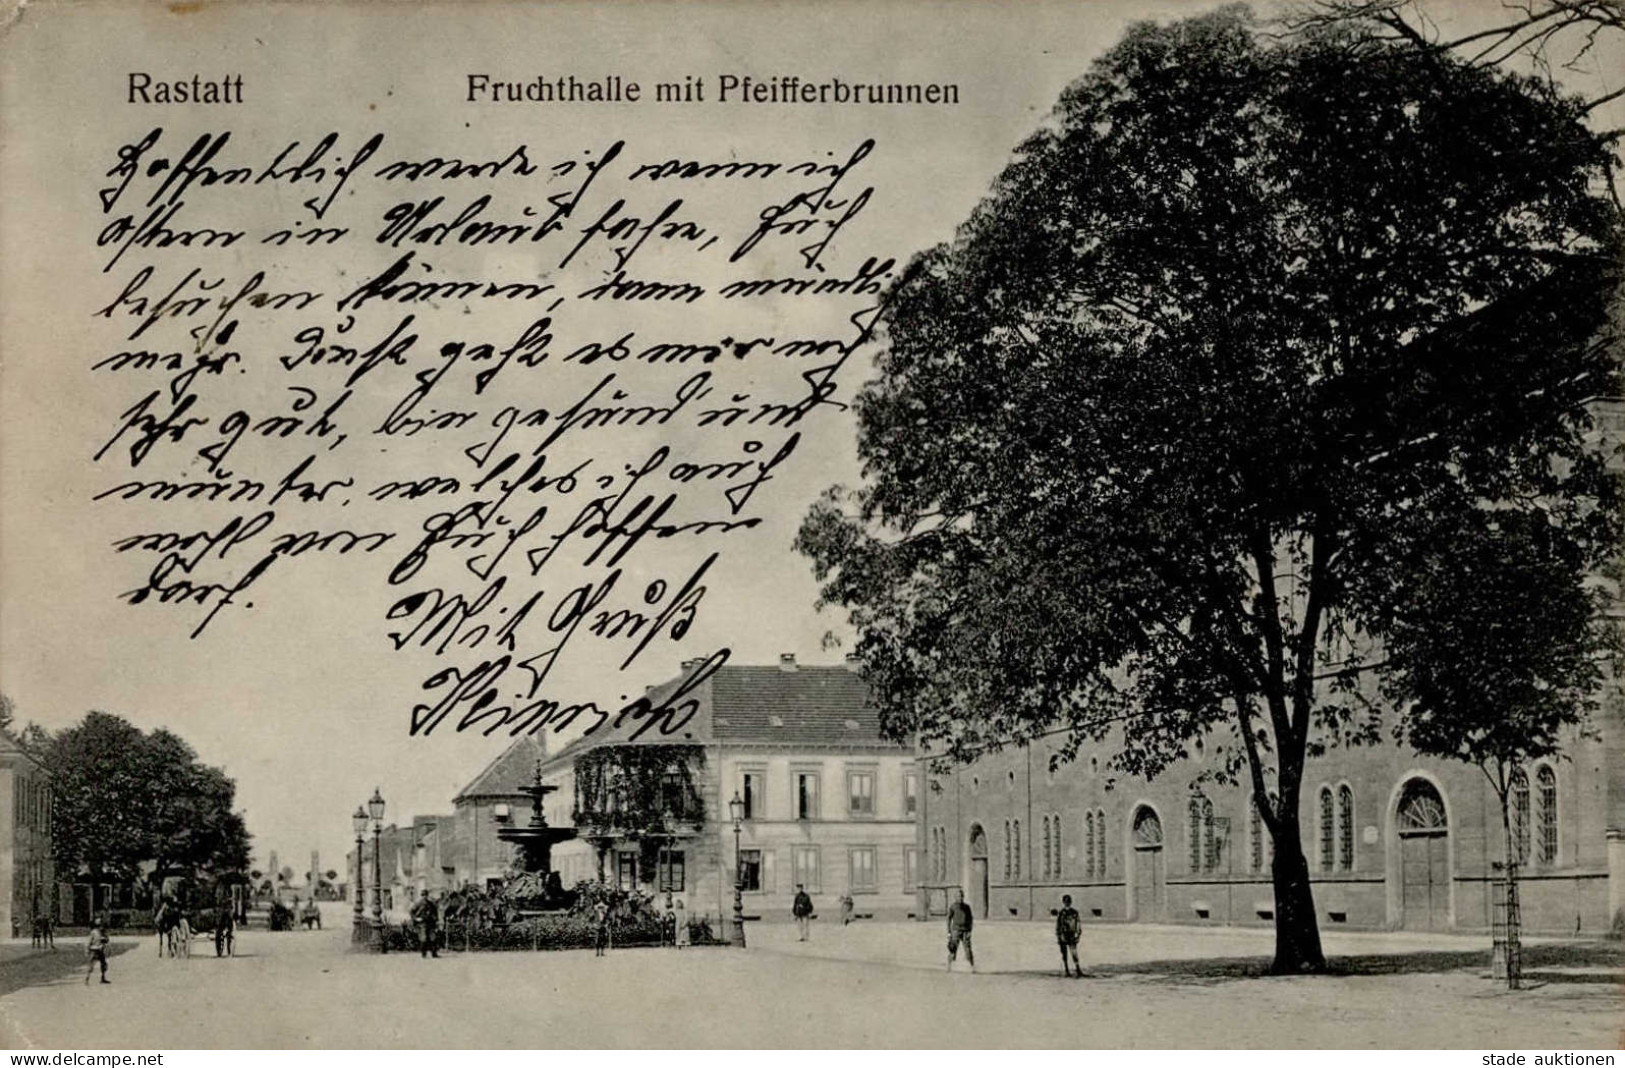 Rastatt Fruchthalle mit Pfeifferbrunnen
Hoffentlich werde ich wenn ich
Ostern in Urlaub fahre, Euch
besuchen können, dann mündli
mehr. Sonst geht es mir noch
sehr gut, bin gesund und
munter, welches ich auch
wohl von Euch hoffen
darf.
Mit Gruß
Heinrich.
www.delcampe.net
stade auktionen